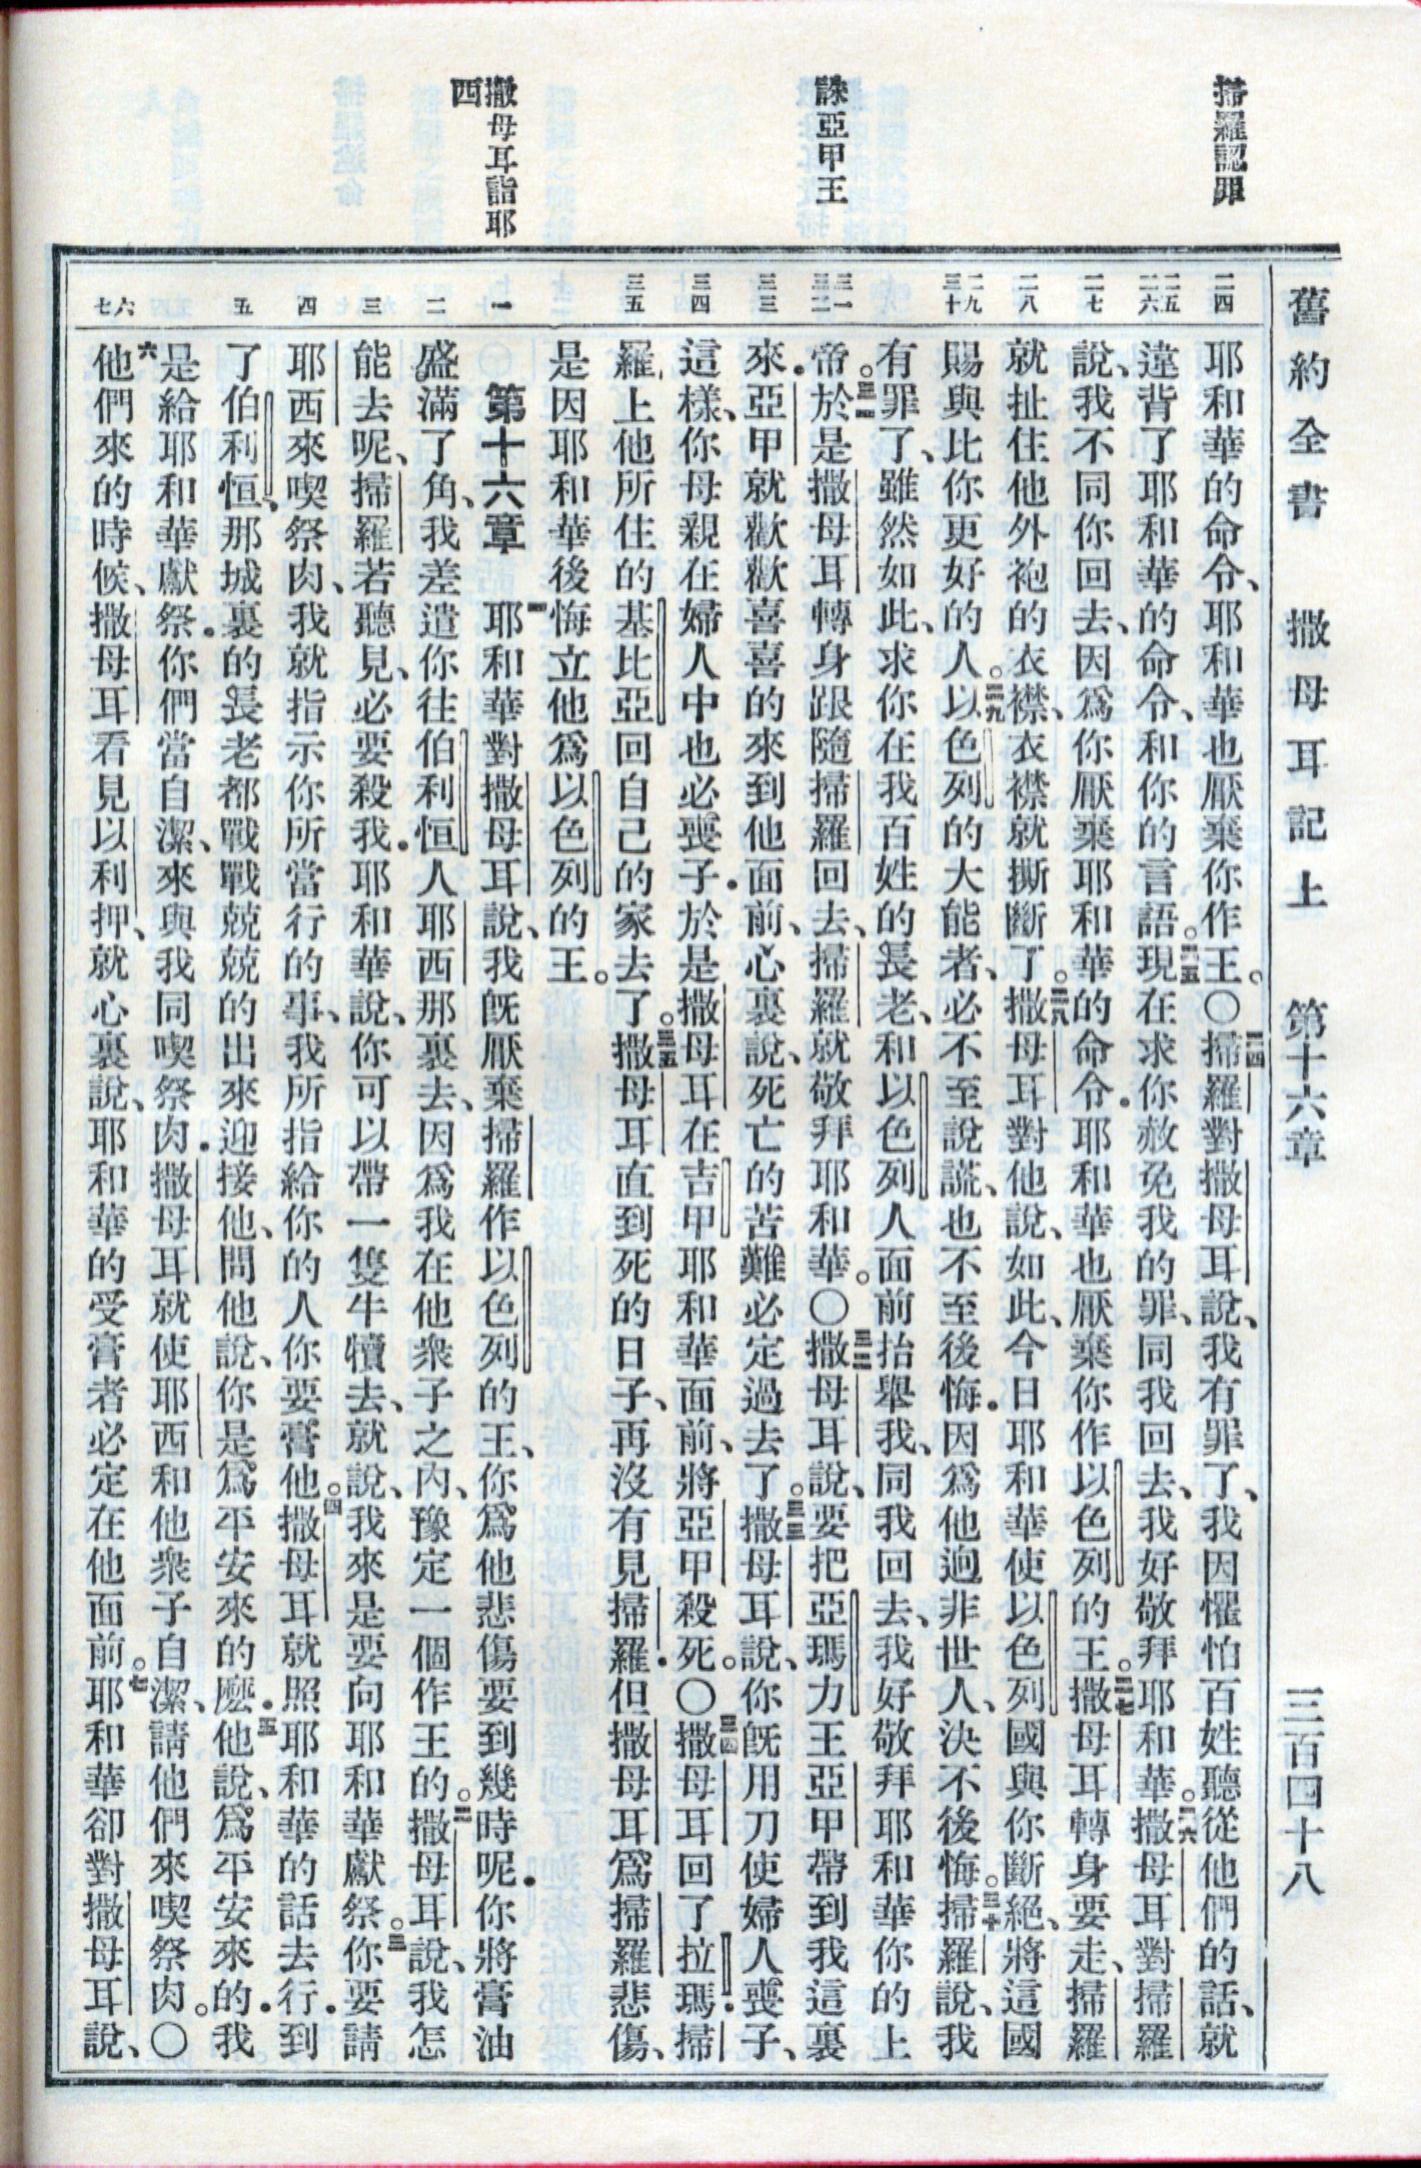 舊約全書　撒母耳記上　第十六章　三百四十八
掃羅認罪
誅亞甲王
撒母耳詣耶
西
二四
二五
二六
二七
二八
二九
三十
三一
三二
三三
三四
三五
一
二
三
四
五
六
七
耶和華的命令、耶和華也厭棄你作王。〇二四掃羅對撒母耳說、我有罪了、我因懼怕百姓聽從他們的話、就
違背了耶和華的命令、和你的言語。二五現在求你赦免我的罪、同我回去、我好敬拜耶和華。二六撒母耳對掃羅
說、我不同你回去、因爲你厭棄耶和華的命令．耶和華也厭棄你作以色列的王。二七撒母耳轉身要走、掃羅
就扯住他外袍的衣襟、衣襟就撕斷了。二八撒母耳對他說、如此、今日耶和華使以色列國與你斷絕、將這國
賜與比你更好的人。二九以色列的大能者、必不至說謊、也不至後悔．因爲他逈非世人、決不後悔。三十掃羅說、我
有罪了、雖然如此、求你在我百姓的長老、和以色列人面前抬舉我、同我回去、我好敬拜耶和華你的上
帝。三一於是撒母耳轉身跟隨掃羅回去、掃羅就敬拜耶和華。〇三二撒母耳說、要把亞瑪力王亞甲帶到我這裏
來．亞甲就歡歡喜喜的來到他面前、心裏說、死亡的苦難必定過去了。三三撒母耳說、你旣用刀使婦人喪子、
這樣、你母親在婦人中也必喪子．於是撒母耳在吉甲耶和華面前、將亞甲殺死。〇三四撒母耳回了拉瑪．掃
羅上他所住的基比亞回自己的家去了。三五撒母耳直到死的日子、再沒有見掃羅．但撒母耳爲掃羅悲傷、
是因耶和華後悔立他爲以色列的王。
第十六章　一耶和華對撒母耳說、我旣厭棄掃羅作以色列的王、你爲他悲傷要到幾時呢．你將膏油
盛滿了角、我差遣你往伯利恒人耶西那裏去、因爲我在他衆子之內、豫定一個作王的。二撒母耳說、我怎
能去呢、掃羅若聽見、必要殺我．耶和華說、你可以帶一隻牛犢去、就說、我來是要向耶和華獻祭。三你要請
耶西來喫祭肉、我就指示你所當行的事、我所指給你的人你要膏他。四撒母耳就照耶和華的話去行．到
了伯利恒、那城裏的長老都戰戰兢兢的出來迎接他、問他說、你是爲平安來的麽．五他說、爲平安來的．我
是給耶和華獻祭．你們當自潔、來與我同喫祭肉．撒母耳就使耶西和他衆子自潔、請他們來喫祭肉。〇
六他們來的時候、撒母耳看見以利押、就心裏說、耶和華的受膏者必定在他面前。七耶和華卻對撒母耳說、